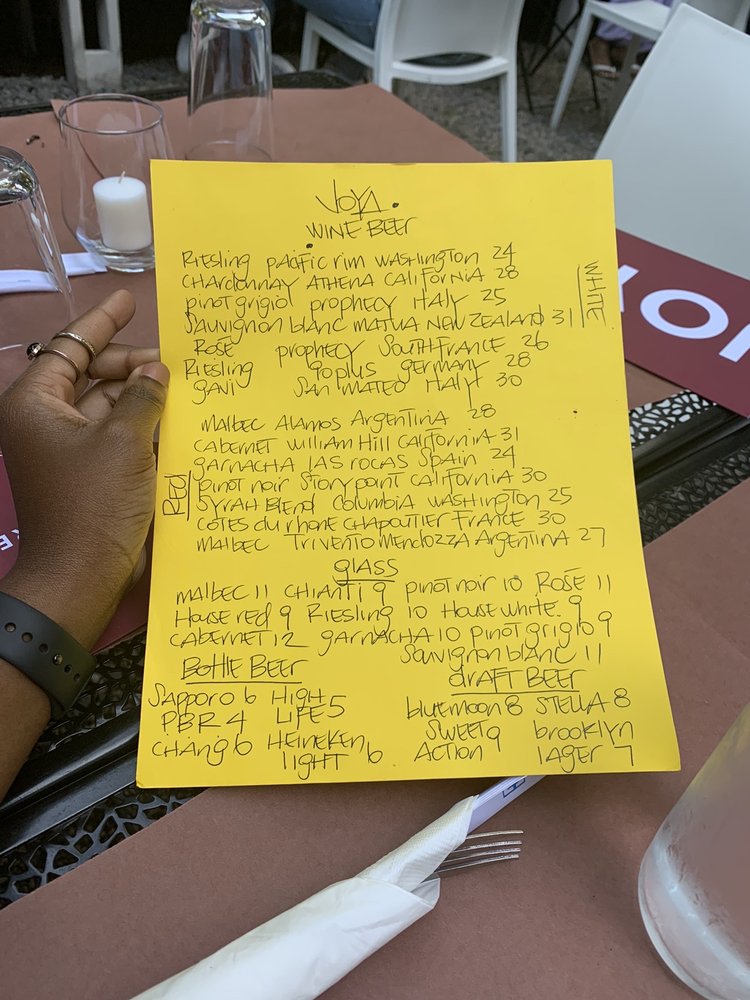 JOYA.
WINE BEER
RIESLING pacific rim WASHINGTON 24
CHARDONNAY ATHENA CALIFORNIA 28
pinot grigio prophecy ITALY 25
SAUVIGNON blanc MATUA NEW ZEALAND 31
WHITE
ROSÉ prophecy SOUTH FRANCE 26
RIESLING 90 plus germany 28
GAVI SAN MATEO ITALY 30
MALBEC ALAMOS ARGENTINA 28
CABERNET william Hill CALIFORNIA 31
GARNACHA LAS ROCAS SPAIN 24
Red
pinot noir STORY point CALIFORNIA 30
SYRAH BLEND Columbia WASHINGTON 25
COTES du rhone CHAPOUTIER FRANCE 30
MALBEC TRIVENTO MENDOZZA ARGENTINA 27
glASS
MALBEC 11 CHIANTI 9 pinot noir 10 ROSÉ 11
House red 9 RIESLING 10 House white. 9
CABERNET 12 GARNACHA 10 pinot grigio 9
SAUVIGNON blanc 11
BOTTLE BEER
SAPPORO 6 HIGH LIFE 5
PBR 4
CHANG 6 HEINEKEN light 6
drAFT BEER
bluemoon 8 STELLA 8
SWEET ACTION 9 brooklyn lager 7
JOY